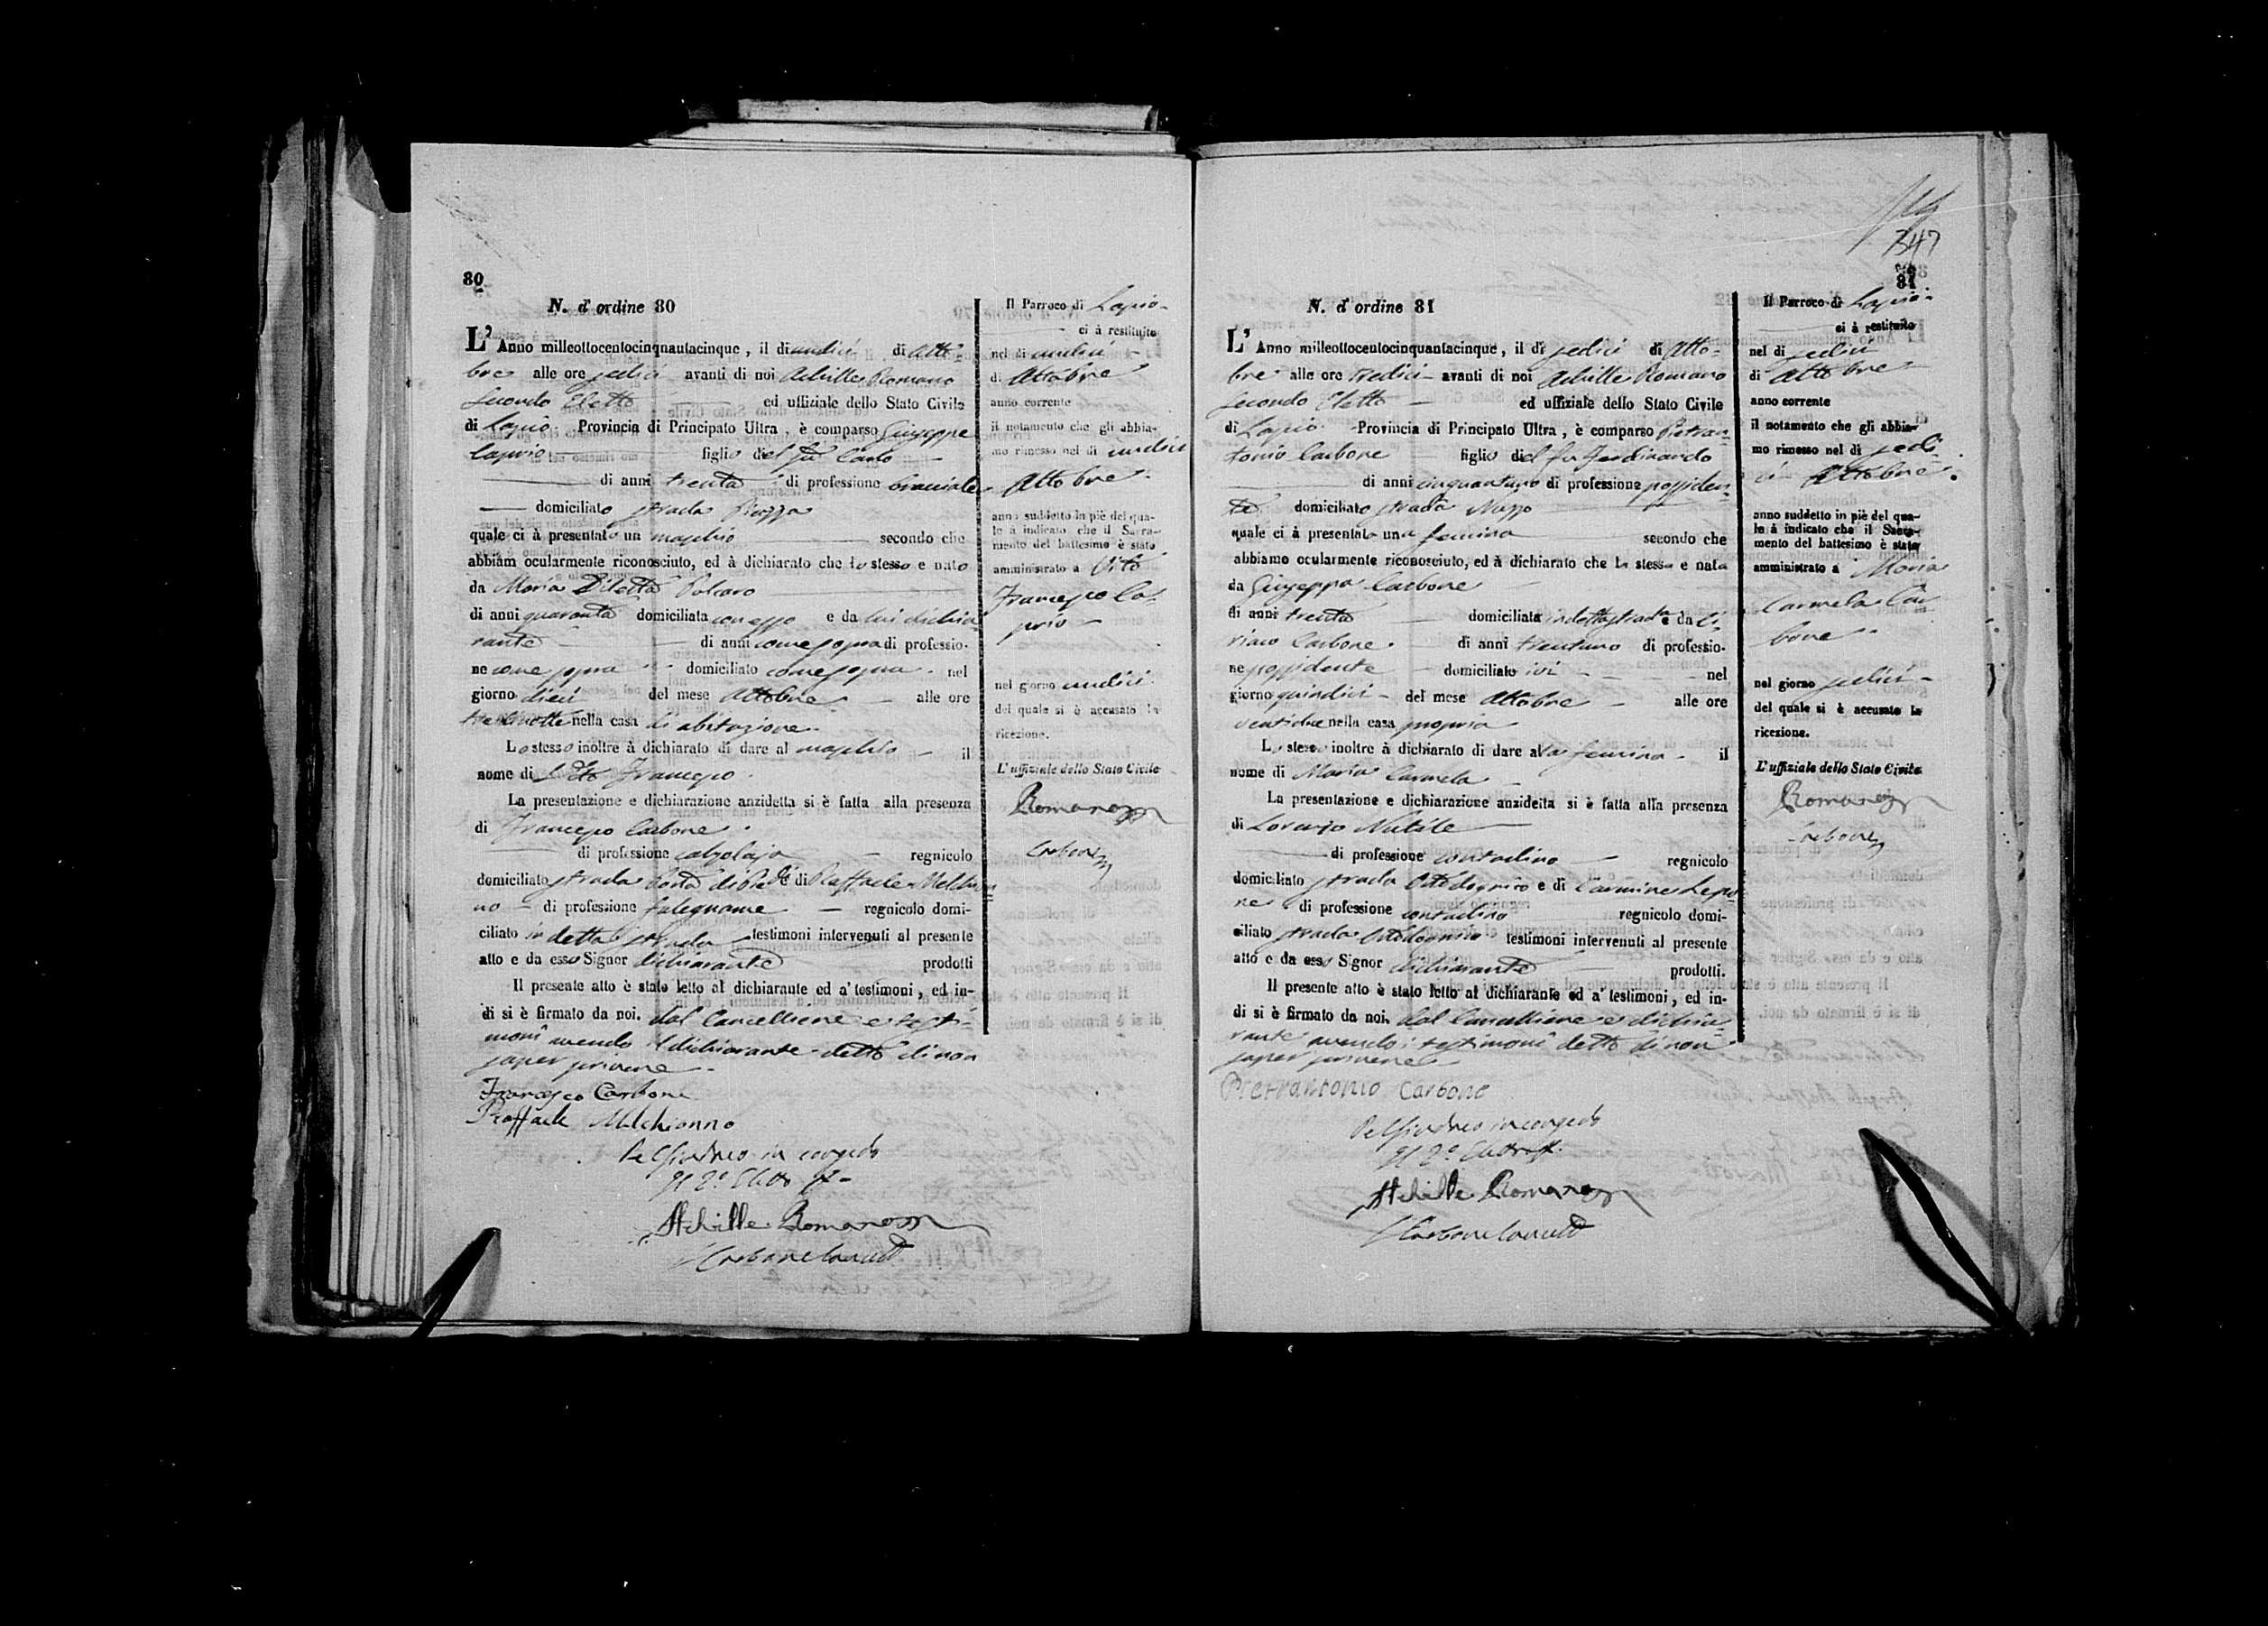 80
N. d'ordine 80
L' Anno milleottocentocinquantacinque, il dì undici di Otto-
bre alle ore sedici avanti di noi Achille Romano
Secondo Eletto ed uffiziale dello Stato Civile
di Lapio Provincia di Principato Ultra, è comparso Giuseppe
Caprio figlio del fu Carlo
di anni trenta di professione bracciale
domiciliato strada Piazza
quale ci à presentato un maschio secondo che
abbiam ocularmente riconosciuto, ed à dichiarato che lo stesso e nato
da Maria Diletta Polcaro
di anni quaranta domiciliata con esso e da lui dichia-
rante di anni come sopra di professio-
ne come sopra domiciliato come sopra nel
giorno dieci del mese Ottobre alle ore
nella casa di abitazione
Lo stesso inoltre à dichiarato di dare al maschio il
nome di Vito Francesco
La presentazione e dichiarazione anzidetta si è fatta alla presenza
di Francesco Carbone
di professione calzolajo regnicolo
domiciliato strada e di Raffaele Melchion
no di professione falegname regnicolo domi-
ciliato in detta strada testimoni intervenuti al presente
atto e da esso Signor dichiarante prodotti
Il presente atto è stato letto al dichiarante ed a' testimoni, ed in-
di si è firmato da noi, dal Cancelliere e testi-
moni avendo il dichiarante detto di non
saper scrivere
Francesco Carbone
Raffaele Melchionno
Pel Sindaco in congedo
Il 2º Eletto ff
Achille Romano
Carbone Canc
Il Parroco di Lapio
ci à restituito
nel dì undici
di Ottobre
anno corrente
il notamento che gli abbia-
mo rimesso nel dì undici
Ottobre
anno suddetto in piè del qua-
le à indicato che il Sacra-
mento del battesimo è stato
amministrato a Vito
Francesco Ca-
prio
nel giorno undici
del quale si è accusato la
ricezione.
L'uffiziale dello Stato Civile
Romano
Carbone
347
81
N. d'ordine 81
L' Anno milleottocentocinquantacinque, il dì sedici di Otto-
bre alle ore tredici avanti di noi Achille Romano
Secondo Eletto ed uffiziale dello Stato Civile
di Lapio Provincia di Principato Ultra, è comparso Pietran-
tonio Carbone figlio del fu Ferdinando
di anni cinquantuno di professione possiden-
te domiciliato strada
quale ci à presentata una femina secondo che
abbiamo ocularmente riconosciuto, ed à dichiarato che la stessa e nata
da Giuseppa Carbone
di anni trenta domiciliata in detta strada e da Ci-
riaco Carbone di anni trentuno di professio-
ne possidente domiciliato ivi nel
giorno quindici del mese Ottobre alle ore
ventidue nella casa propria
Lo stesso inoltre à dichiarato di dare alla femina il
nome di Maria Carmela
La presentazione e dichiarazione anzidetta si è fatta alla presenza
di Lorenzo Nutile
di professione contadino regnicolo
domiciliato strada e di Carmine Lepo-
re di professione contadino regnicolo domi-
ciliato strada testimoni intervenuti al presente
atto e da esso Signor dichiarante prodotti.
Il presente atto è stato letto al dichiarante ed a' testimoni, ed in-
di si è firmato da noi, dal Cancelliere e dichia-
rante avendo i testimoni detto di non
saper scrivere
Pietrantonio Carbone
Pel Sindaco in congedo
Il 2º Eletto ff
Achille Romano
Carbone Canc
Il Parroco di Lapio
ci à restituito
nel di sedici
di Ottobre
anno corrente
il notamento che gli abbia-
mo rimesso nel dì sedi-
ci Ottobre
anno suddetto in piè del qua-
le à indicato che il Sacra-
mento del battesimo è stato
amministrato a Maria
Carmela Car
bone
nel giorno sedici
del quale si è accusato la
ricezione.
L'uffiziale dello Stato Civile
Romano
Carbone